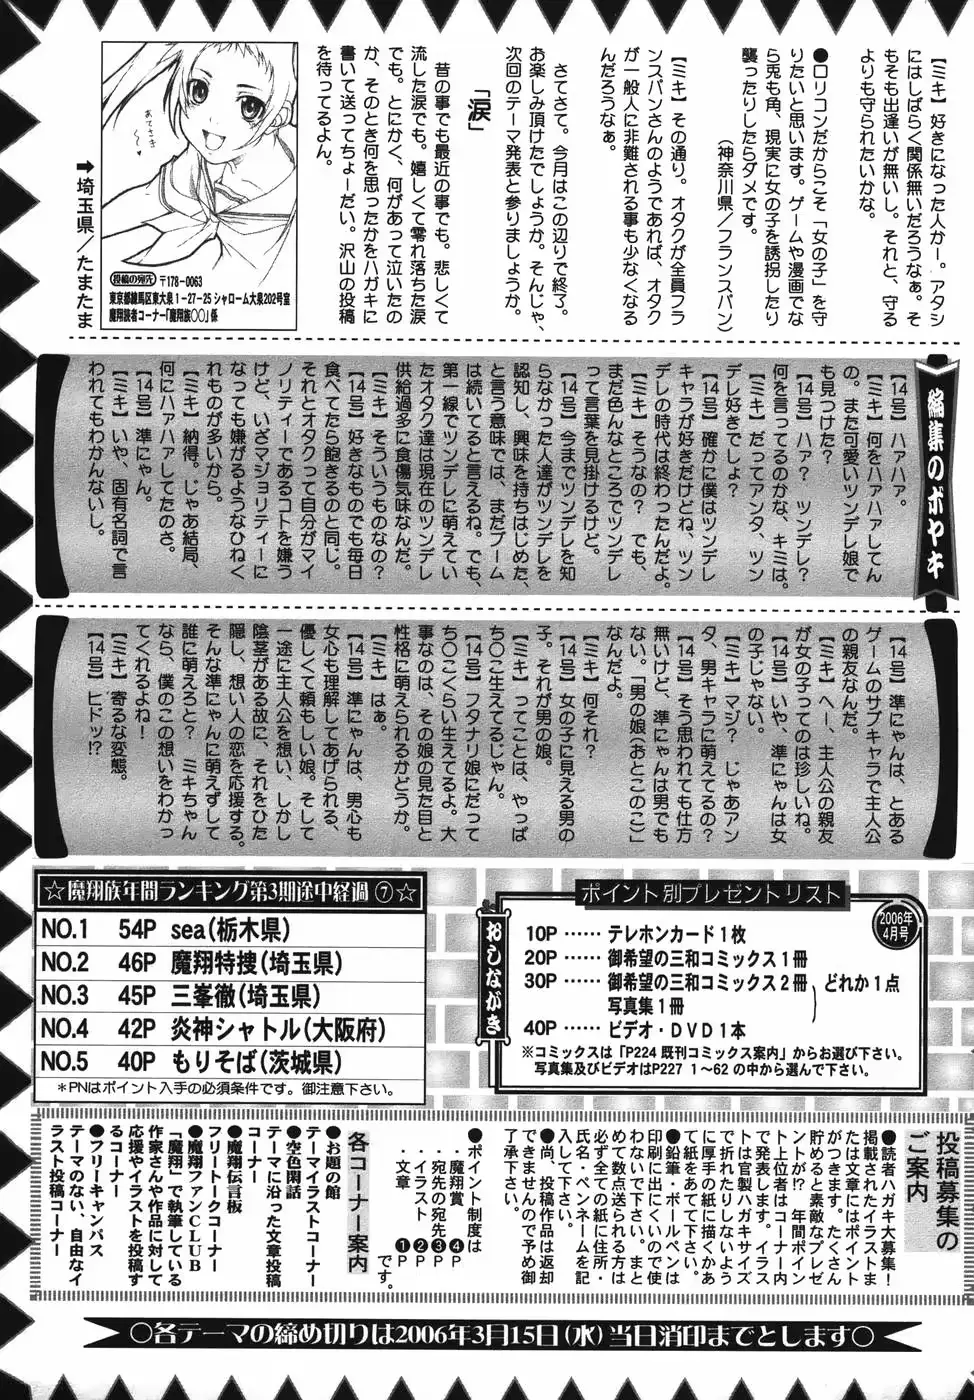 【ミキ】好きになった人かー。アタシ
にはしばらく関係無いだろうなぁ。そ
もそも出逢いが無いし。それと、守る
よりも守られたいかな。
●ロリコンだからこそ「女の子」を守
りたいと思います。ゲームや漫画でな
ら兎も角、現実に女の子を誘拐したり
襲ったりしたらダメです。
（神奈川県／フランスパン）
【ミキ】その通り。オタクが全員フラ
ンスパンさんのようであれば、オタク
が一般人に非難される事も少なくなる
んだろうなぁ。
さてさて。今月はこの辺りで終了。
お楽しみ頂けたでしょうか。そんじゃ、
次回のテーマ発表と参りましょうか。
「涙」
昔の事でも最近の事でも。悲しくて
流した涙でも。嬉しくて零れ落ちた涙
でも。とにかく、何があって泣いたの
か、そのとき何を思ったかをハガキに
書いて送ってちょーだい。沢山の投稿
を待ってるよん。
あてさき
投稿の宛先 〒178-0063
東京都練馬区東大泉1-27-25 シャローム大泉202号室
魔翔読者コーナー「魔翔族〇〇」係
➡埼玉県／たまたま
編集のボヤキ
【14号】ハァハァ。
【ミキ】何をハァハァしてん
の。また可愛いツンデレ娘で
も見つけた？
【14号】ハァ？　ツンデレ？
何を言ってるのかな、キミは。
【ミキ】だってアンタ、ツン
デレ好きでしょ？
【14号】確かに僕はツンデレ
キャラが好きだけどね、ツン
デレの時代は終わったんだよ。
【ミキ】そうなの？　でも、
まだ色んなところでツンデレ
って言葉を見掛けるけど。
【14号】今までツンデレを知
らなかった人達がツンデレを
認知し、興味を持ちはじめた、
と言う意味では、まだブーム
は続いてると言えるね。でも、
第一線でツンデレに萌えてい
たオタク達は現在のツンデレ
供給過多に食傷気味なんだ。
【ミキ】そういうものなの？
【14号】好きなものでも毎日
食べてたら飽きるのと同じ。
それとオタクって自分がマイ
ノリティーであるコトを嫌う
けど、いざマジョリティーに
なっても嫌がるようなひねく
れものが多いから。
【ミキ】納得。じゃあ結局、
何にハァハァしてたのさ。
【14号】準にゃん。
【ミキ】いや、固有名詞で言
われてもわかんないし。
【14号】準にゃんは、とある
ゲームのサブキャラで主人公
の親友なんだ。
【ミキ】へー、主人公の親友
が女の子ってのは珍しいね。
【14号】いや、準にゃんは女
の子じゃない。
【ミキ】マジ？　じゃあアン
タ、男キャラに萌えてるの？
【14号】そう思われても仕方
無いけど、準にゃんは男でも
ない。「男の娘（おとこのこ）」
なんだよ。
【ミキ】何それ？
【14号】女の子に見える男の
子。それが男の娘。
【ミキ】ってことは、やっぱ
ち〇こ生えてるじゃん。
【14号】フタナリ娘にだって
ち〇こくらい生えてるよ。大
事なのは、その娘の見た目と
性格に萌えられるかどうか。
【ミキ】はぁ。
【14号】準にゃんは、男心も
女心も理解してあげられる、
優しくて頼もしい娘。そして
一途に主人公を想い、しかし
陰茎がある故に、それをひた
隠し、想い人の恋を応援する。
そんな準にゃんに萌えずして
誰に萌えろと？　ミキちゃん
なら、僕のこの想いをわかっ
てくれるよね！
【ミキ】寄るな変態。
【14号】ヒドッ!?
☆魔翔族年間ランキング第3期途中経過⑦☆
NO.1 54P sea(栃木県)
NO.2 46P 魔翔特捜(埼玉県)
NO.3 45P 三峯徹(埼玉県)
NO.4 42P 炎神シャトル(大阪府)
NO.5 40P もりそば(茨城県)
＊PNはポイント入手の必須条件です。御注意下さい。
ポイント別プレゼントリスト
2006年
4月号
おしながき
10P …… テレホンカード1枚
20P …… 御希望の三和コミックス1冊
30P …… 御希望の三和コミックス2冊
写真集1冊
どれか1点
40P …… ビデオ・DVD1本
※コミックスは「P224 既刊コミックス案内」からお選び下さい。
写真集及びビデオはP227 1〜62の中から選んで下さい。
投稿募集の
ご案内
●読者ハガキ大募集！
掲載されたイラストま
たは文章にはポイント
がつきます。たくさん
貯めると素敵なプレゼ
ントが!?　年間ポイン
ト上位者はコーナー内
で発表します。イラス
トは官製ハガキサイズ
で折れたりしないよう
に厚手の紙に描くかあ
て紙をあてて下さい。
●鉛筆・ボールペンは
印刷に出にくいので使
わないで下さい。まと
めて数点送られる方は
必ず全ての紙に住所・
氏名・ペンネームを記
入して下さい。
●尚、投稿作品は返却
できませんので予め御
了承下さい。
●ポイント制度は
・魔翔賞 ❹P
・宛先の宛先 ❸P
・イラスト ❷P
・文章 ❶P
です。
各コーナー案内
●お題の館
テーマイラストコーナー
●空色閑話
テーマに沿った文章投稿
コーナー
●魔翔伝言板
フリートークコーナー
●魔翔ファンCLUB
「魔翔」で執筆している
作家さんや作品に対して
応援やイラストを投稿す
るコーナー
●フリーキャンパス
テーマのない、自由なイ
ラスト投稿コーナー
〇各テーマの締め切りは2006年3月15日(水)当日消印までとします〇